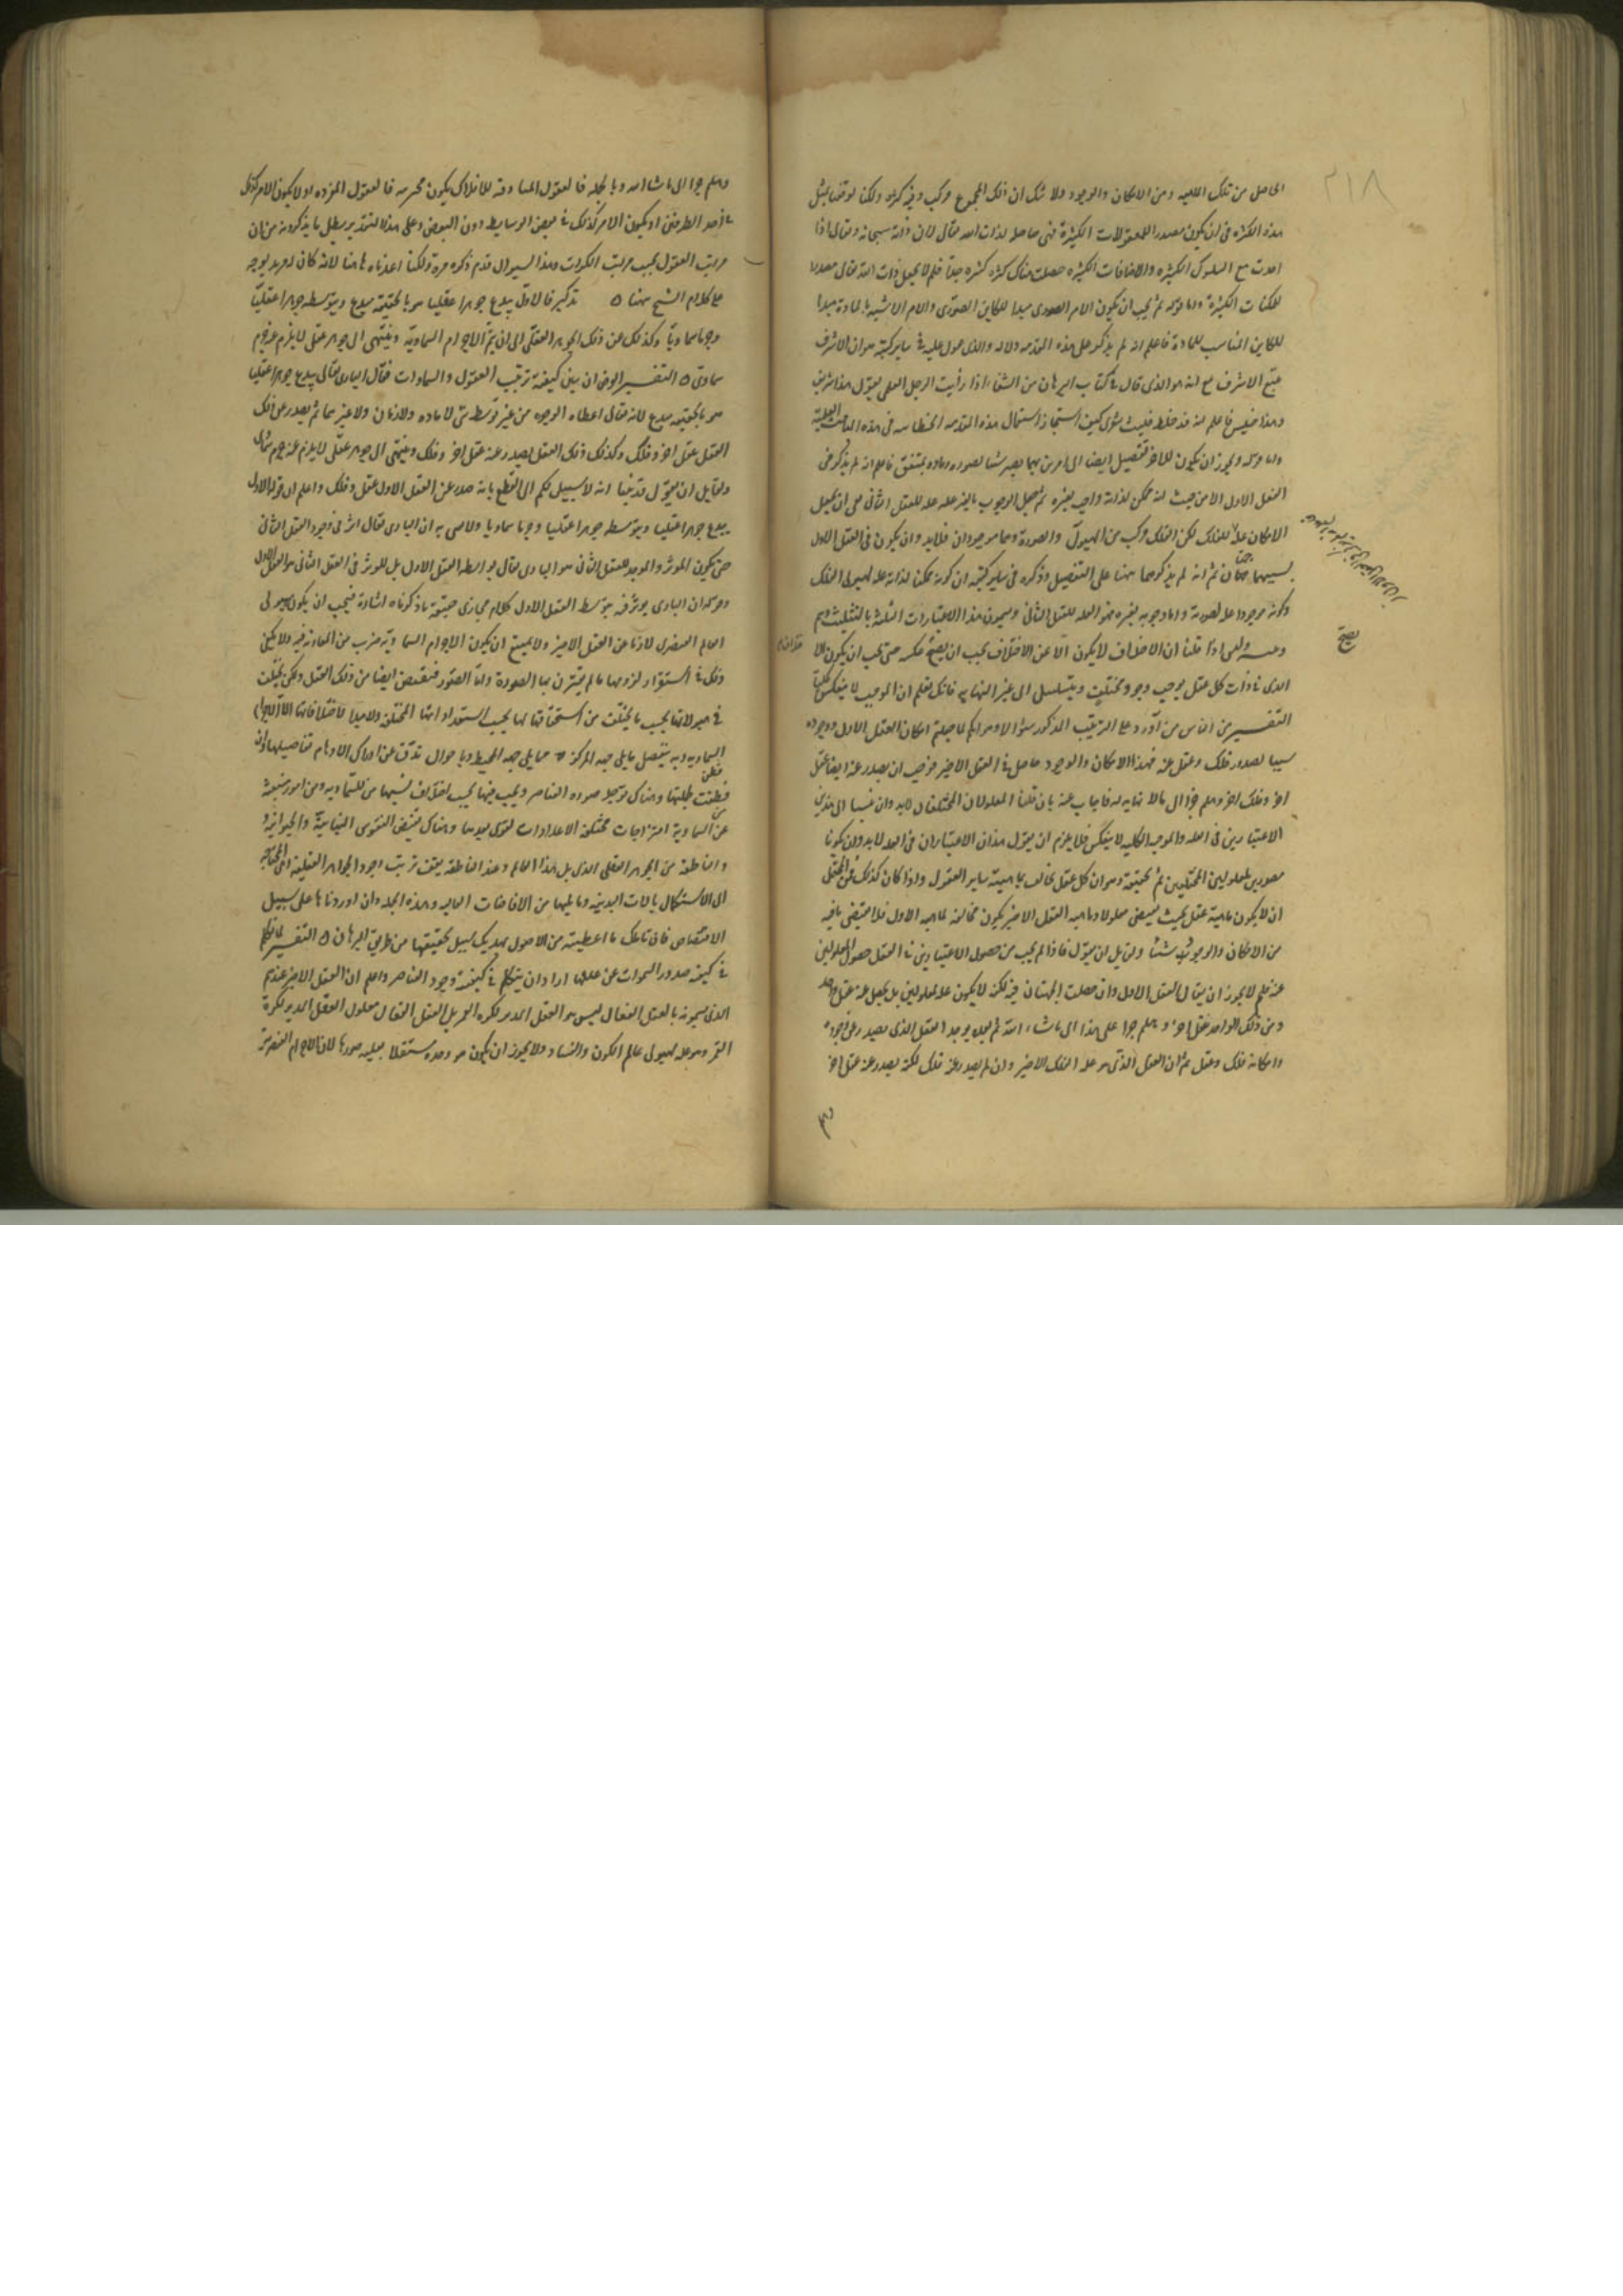 ٢١٨
الحاصل من تلك الماهية ومن الامكان والوجود ولا شك ان ذلك المجموع مركب وفيه كثرة ولكنا لو قنعنا بمثل
هذه الكثرة فى ان يكون مصدر اللمعلولات الكثيرة فهى حاصلة لذات الله تعالى لان ذاته سبحانه وتعالى اذا
اخذت مع السلوب الكثيرة والاضافات الكثيرة حصلت هناك كثرة كثيرة جدا فلم لا يجعل ذات الله تعالى مصدرا
للممكنات الكثيرة واما قوله ثم يجب ان يكون الامر الصورى مبدا للكاين الصورى والامر الاشبه بالمادة مبدا
للكاين المناسب للمادة فاعلم انه لم يذكر على هذه المقدمة دلالة والذى عول عليه فى ساير كتبه هو ان الاشرف
يتبع الاشرف مع انه هو الذى قال فى كتاب البرهان من الشفاء اذا رأيت الرجل العلمى يقول هذا شريف
وهذا خسيس فاعلم انه قد خلط فليت شعرى كيف استجاز استعمال هذه المقدمة الخطابية فى هذه المباحث العلمية
واما قوله ويجوز ان يكون للاخر تفصيل ايضا الى امرين بهما يصير سببا لصورة ومادة جسميتين فاعلم انه لم يذكر فى
العقل الاول الا من حيث انه ممكن لذاته واجب بغيره ثم جعل الوجوب بالغير علة للعقل الثانى بقى ان يجعل
الامكان علة للفلك لكن الفلك مركب من الهيولى والصورة وهما موجودان فلا بد وان يكون فى العقل الاول
بسببهما جهتان ثم انه لم يذكرهما ههنا على التفصيل وذكره فى ساير كتبه ان كونه ممكنا لذاته علة لهيولى الفلك
وكونه موجودا علة لصورته واما وجوبه بغيره فهو العلة للعقل الثانى ويسمون هذا الاعتبارات الثلثة بالتثليث
وهم وتنبيه وليس اذا قلنا ان الاختلاف لا يكون الا عن الاختلاف يجب ان يصح عكسه حتى يجب ان يكون
الذى فى ذات كل عقل يوجب وجود مختلف ويتسلسل الى غير النهاية فانك تعلم ان الموجب لا ينعكس كليا
التفسير من الناس من اورد على الترتيب المذكور سؤالا وهو انكم لما جعلتم امكان العقل الاول ووجوده
سببا لصدور فلك وعقل عنه فهذا الامكان والوجود حاصل فى العقل الاخير فوجب ان يصدر عنه ايضا عقل
اخر وفلك اخر وهلم جرا الى ما لا نهاية له فاجاب عنه بان قلنا المعلولان المختلفان لا بد وان ينسبا الى هذين
الاعتبارين فى العلة والموجبة الكلية لا ينعكس فلا يلزم ان يقول هذان الاعتباران فى العلة لا بد وان يكونا
مصدرين لمعلولين المختلفين ثم تحقيقه وهو ان كل عقل مخالف بماهيته ساير العقول واذا كان كذلك فمن المحتمل
ان لا يكون ماهية عقل بحيث يقتضى معلولا وماهية العقل الاخير يكون مخالفة لماهية الاول فلا يقتضى ما فيه
من الامكان والوجوب شيئا ولقايل ان يقول فاذا لم يجب من حصول الاعتبارين فى العقل حصول المعلولين
عنه فلم لا يجوز ان يقال العقل الاول وان حصلت الجهتان فيه لكنه لا يكون علة لمعلولين بل يحصل عنه عقل واحد
ومن ذلك الواحد عقل اخر وهلم جرا على هذا الى ما شاء الله ثم بعده يوجد العقل الذى يصدر عن وجوده
وامكانه فلك وعقل ثم ان العقل الذى هو علة الفلك الاخير وان لم يصدر عنه فلك لكنه يصدر عنه عقل اخر
يصح
وهلم جرا الى ما شاء الله وبالجملة فالعقول المساوقة للافلاك يكون محصورة فالعقول المفردة او لا يكون الامر كذلك
فى احد الطرفين او يكون الامر كذلك فى بعض الوسايط دون البعض وعلى هذا التقدير يبطل ما يذكرونه من ان
مراتب العقول بحسب مراتب الكرات وهذا السؤال قد تم ذكره مرة ولكنا اعدناه هاهنا لانه كان لمزيد توجه
على كلام الشيخ ههنا ه تذكير فالاول يبدع جوهرا عقليا هو بالحقيقة مبدع وبتوسطه جوهرا عقليا
وجرما سماويا وكذلك عن ذلك الجوهر العقلى الى ان يتم الاجرام السماوية وينتهى الى جوهر عقلى لا يلزم عنه جرم
سماوى ه التفسير الغرض ان يبين كيفية ترتيب العقول والسماوات فقال البارى تعالى يبدع جوهرا عقليا
هو بالحقيقة مبدع لانه تعالى اعطاه الوجود من غير توسط شى لا مادة ولا زمان ولا غيرهما ثم يصدر عن ذلك
العقل عقل اخر وفلك وكذلك ذلك العقل يصدر عنه عقل اخر وفلك وينتهى الى جوهر عقلى لا يلزم عنه جرم سماوى
ولقايل ان يقول قد بينا انه لا سبيل لكم الى القطع بانه صدر عن العقل الاول عقل وفلك واعلم ان قوله الاول
يبدع جوهرا عقليا وبتوسطه جوهرا عقليا وجرما سماويا ولا نعنى به ان البارى تعالى اثر فى وجود العقل الثانى
حتى يكون الموثر والموجد للعقل الثانى هو البارى تعالى بواسطة العقل الاول بل الموثر فى العقل الثانى هو العقل الاول
وقوله ان البارى يوثر فيه بتوسط العقل الاول كلام مجازى حقيقته ما ذكرناه اشارة فيجب ان يكون هيولى
العالم العنصرى لازما عن العقل الاخير ولا يمتنع ان يكون للاجرام السماوية ضرب من المعاونة فيه ولا يكفى
ذلك فى استقرار لزومها ما لم يقترن بها الصورة واما الصور فتفيض ايضا من ذلك العقل ولكن يختلف
فى هيولاتها بحسب ما يختلف من استحقاقها لها بحسب استعداداتها المختلفة ولا مبدا لاختلافاتها الا الاجرام
السماوية وبه يتفصل ما يلى جهة المركز مما يلى جهة المحيط وباحوال تدق عن ادراك الاوهام تفاصيلها وان
فطنت لجملتها وهناك توجد صورة العناصر ويجب فيها بحسب اختلاف نسبها من السماوية ومن امور منبعثة
عن السماوية امتزاجات مختلفة الاعدادات لقوى يعدها وهناك تفيض النفوس النباتية والحيوانية
والناطقة من الجوهر العقلى الذى يلى هذا العالم وعند الناطقة يقف ترتب وجود الجواهر العقلية المحتاجة
الى الاستكمال بالالات البدنية وما يليها من الافاضات العالية وهذه الجملة وان اوردناها على سبيل
الاقتصاص فان تاملك ما اعطيته من الاصول يهديك سبيل تحقيقها من طريق البرهان ه التفسير لما تكلم
فى كيفية صدور السموات عن عللها اراد ان يتكلم فى كيفية وجود العناصر واعلم ان العقل الاخير عندهم
الذى يسمونه بالعقل الفعال ليس هو العقل المدبر لكرة القمر بل العقل الفعال معلول العقل المدبر لكرة
القمر وهو علة لهيولى عالم الكون والفساد ولا يجوز ان يكون هو وحده مستقلا بعلية صورها لان الاجرام العنصرية